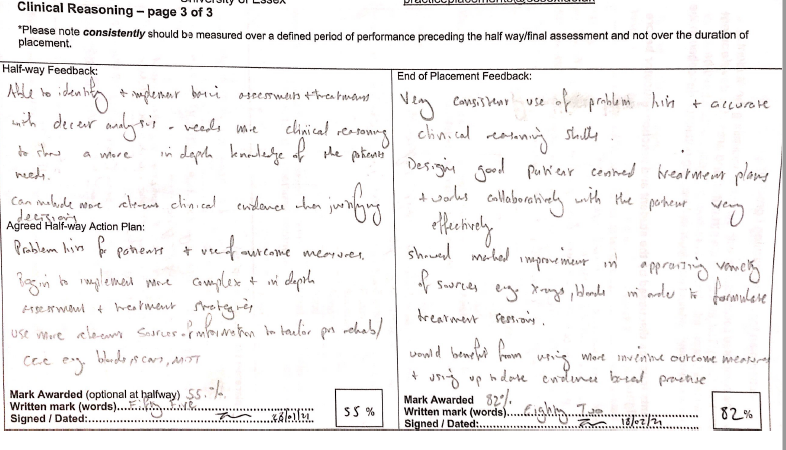 University of Essex
Clinical Reasoning – page 3 of 3
*Please note consistently should be measured over a defined period of performance preceding the half way/final assessment and not over the duration of
placement.
Half-way Feedback:
Able to identify + implement basic assessments + treatments
with decent analysis - needs more clinical reasoning
to show a more in depth knowledge of the patients
needs.
Can include more relevant clinical evidence when justifying
decisions
Agreed Half-way Action Plan:
Problem lists for patients + use of outcome measures.
Begin to implement more complex + in depth
Assessment + treatment strategies
Use more relevant sources of information to tailor pts rehab/
care e.g. bloods, scans, MDT
Mark Awarded (optional at halfway) 55%
Written mark (words) Fifty Five
Signed / Dated: 28/01/21
55 %
End of Placement Feedback:
Very consistent use of problem lists + accurate
clinical reasoning skills.
Designs good patient centred treatment plans
+ works collaboratively with the patient very
effectively
showed marked improvement in appraising variety
of sources e.g. x-rays, bloods in order to formulate
treatment sessions.
would benefit from using more inventive outcome measures
+ using up to date evidence based practise
Mark Awarded 82%
Written mark (words) Eighty Two
Signed / Dated: 18/02/21
82 %